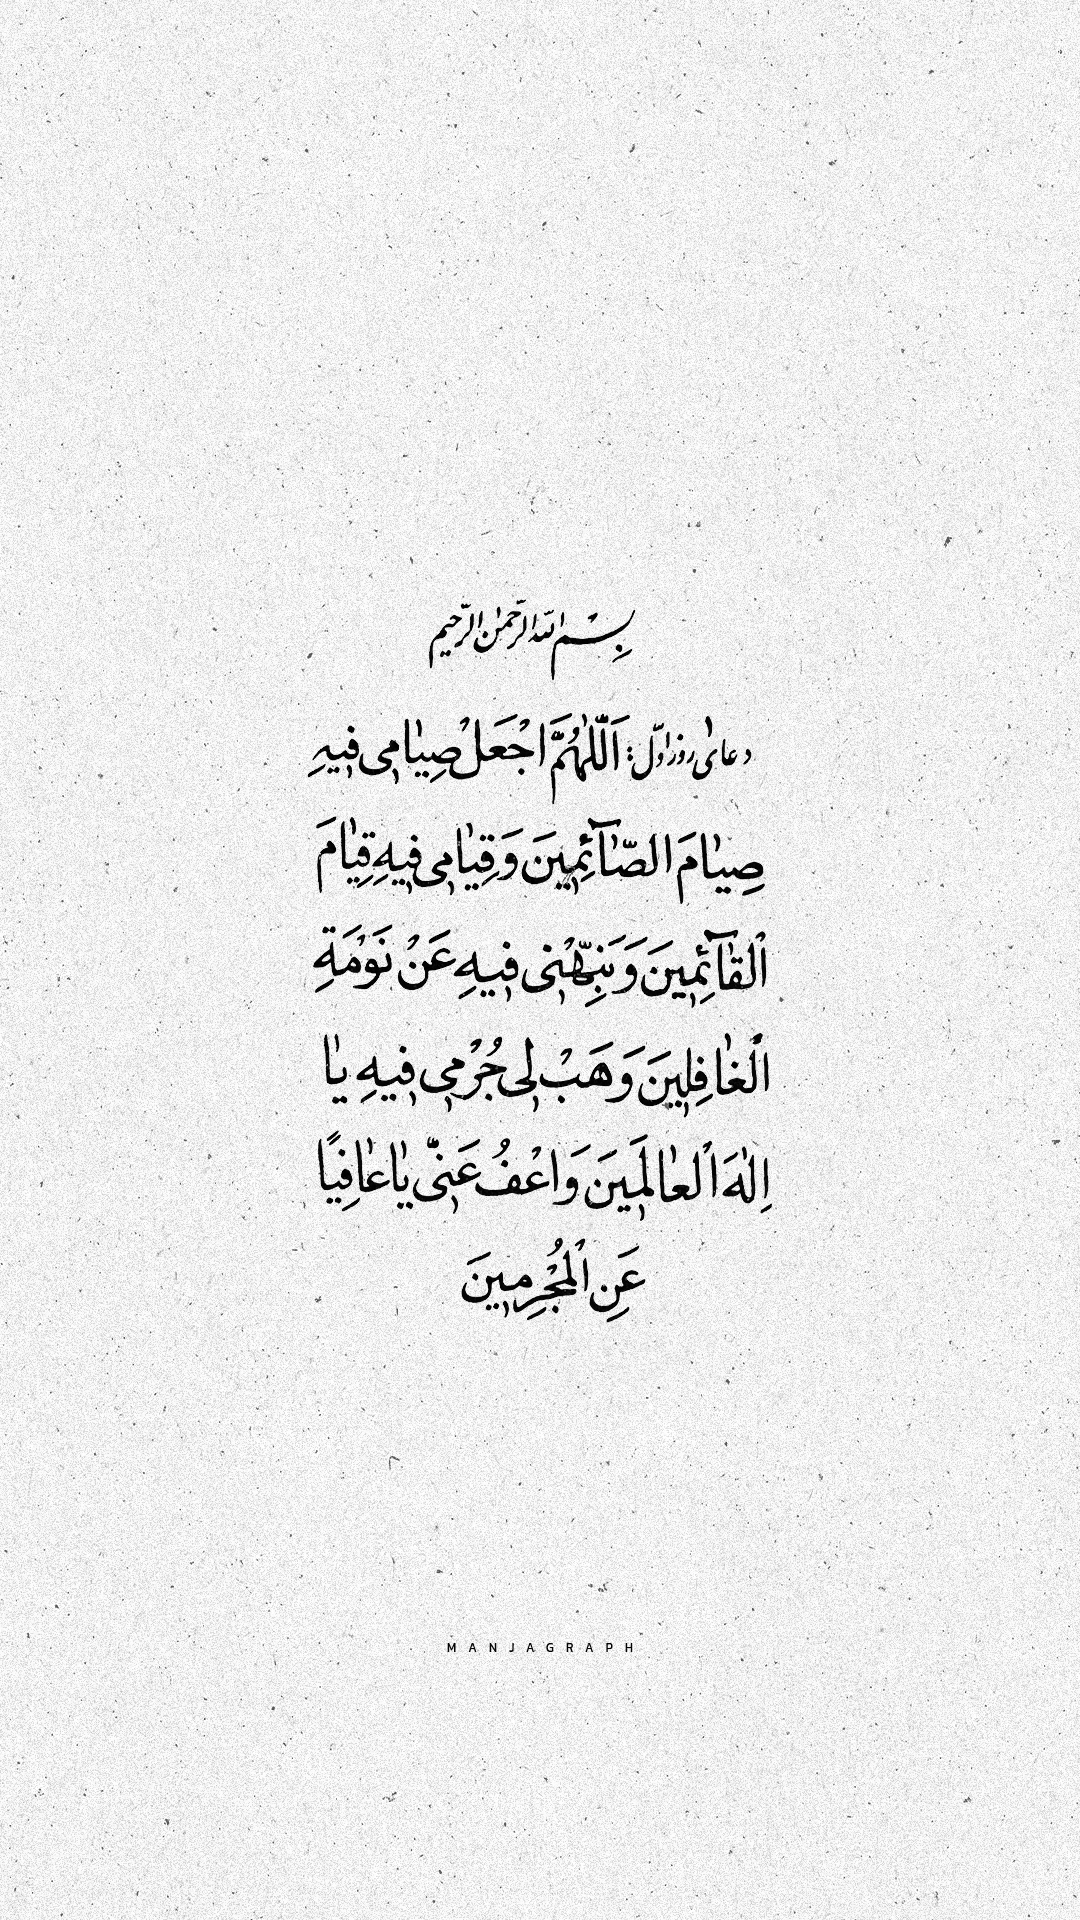 بِسْمِ اللّٰهِ الرَّحْمٰنِ الرَّحيمِ
دعای روز اوّل: اَللّٰهُمَّ اجْعَلْ صِيٰامى فيهِ
صِيٰامَ الصّٰآئِمينَ وَقِيٰامى فيهِ قِيٰامَ
الْقٰآئِمينَ وَنَبِّهْنى فيهِ عَنْ نَوْمَةِ
الْغٰافِلينَ وَهَبْ لى جُرْمى فيهِ يٰا
اِلٰهَ الْعٰالَمينَ وَاعْفُ عَنّى يٰا عٰافِيًا
عَنِ الْمُجْرِمينَ
MANJAGRAPH